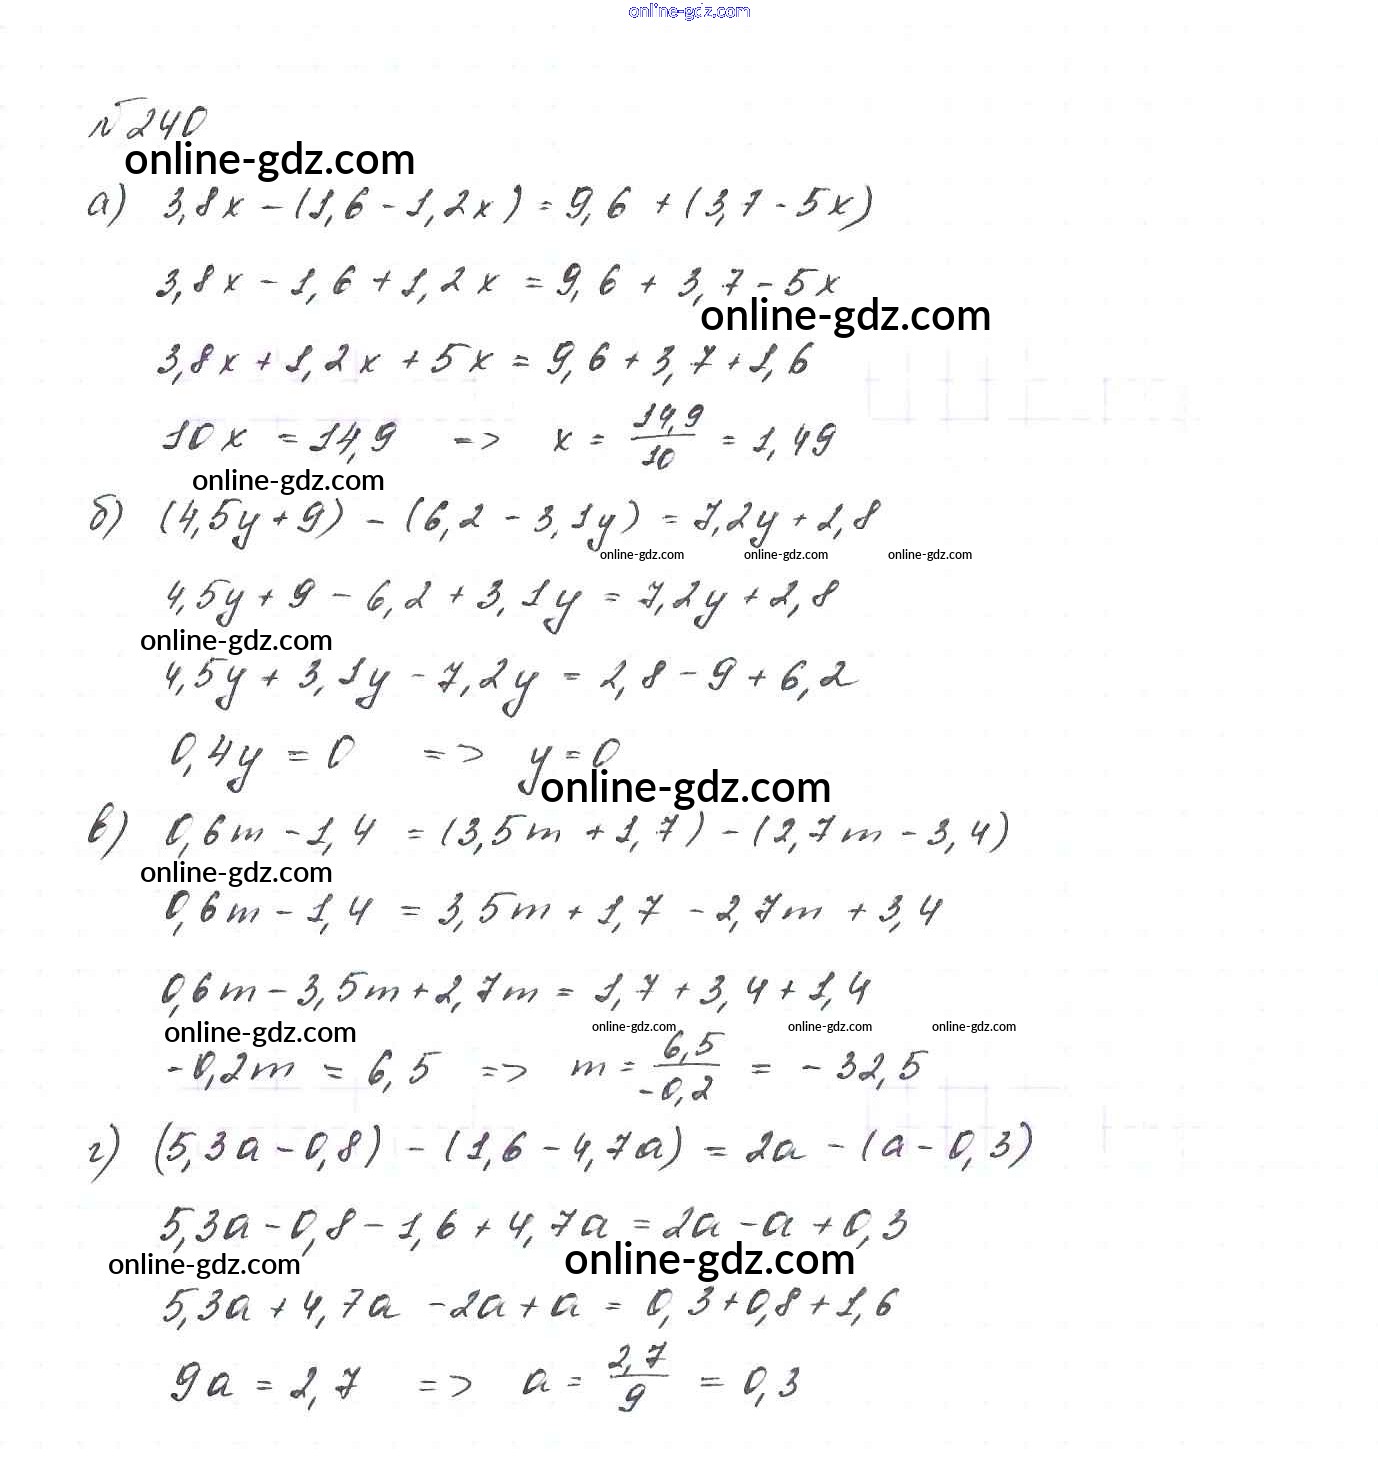 online-gdz.com
№240
online-gdz.com
а) 3,8x - (1,6 - 1,2x) = 9,6 + (3,7 - 5x)
3,8x - 1,6 + 1,2x = 9,6 + 3,7 - 5x
online-gdz.com
3,8x + 1,2x + 5x = 9,6 + 3,7 + 1,6
10x = 14,9 => x = 14,9/10 = 1,49
online-gdz.com
б) (4,5y + 9) - (6,2 - 3,1y) = 7,2y + 2,8
online-gdz.com online-gdz.com online-gdz.com
4,5y + 9 - 6,2 + 3,1y = 7,2y + 2,8
online-gdz.com
4,5y + 3,1y - 7,2y = 2,8 - 9 + 6,2
0,4y = 0 => y = 0
online-gdz.com
в) 0,6m - 1,4 = (3,5m + 1,7) - (2,7m - 3,4)
online-gdz.com
0,6m - 1,4 = 3,5m + 1,7 - 2,7m + 3,4
0,6m - 3,5m + 2,7m = 1,7 + 3,4 + 1,4
online-gdz.com online-gdz.com online-gdz.com online-gdz.com
-0,2m = 6,5 => m = 6,5/-0,2 = -32,5
г) (5,3a - 0,8) - (1,6 - 4,7a) = 2a - (a - 0,3)
5,3a - 0,8 - 1,6 + 4,7a = 2a - a + 0,3
online-gdz.com online-gdz.com
5,3a + 4,7a - 2a + a = 0,3 + 0,8 + 1,6
9a = 2,7 => a = 2,7/9 = 0,3